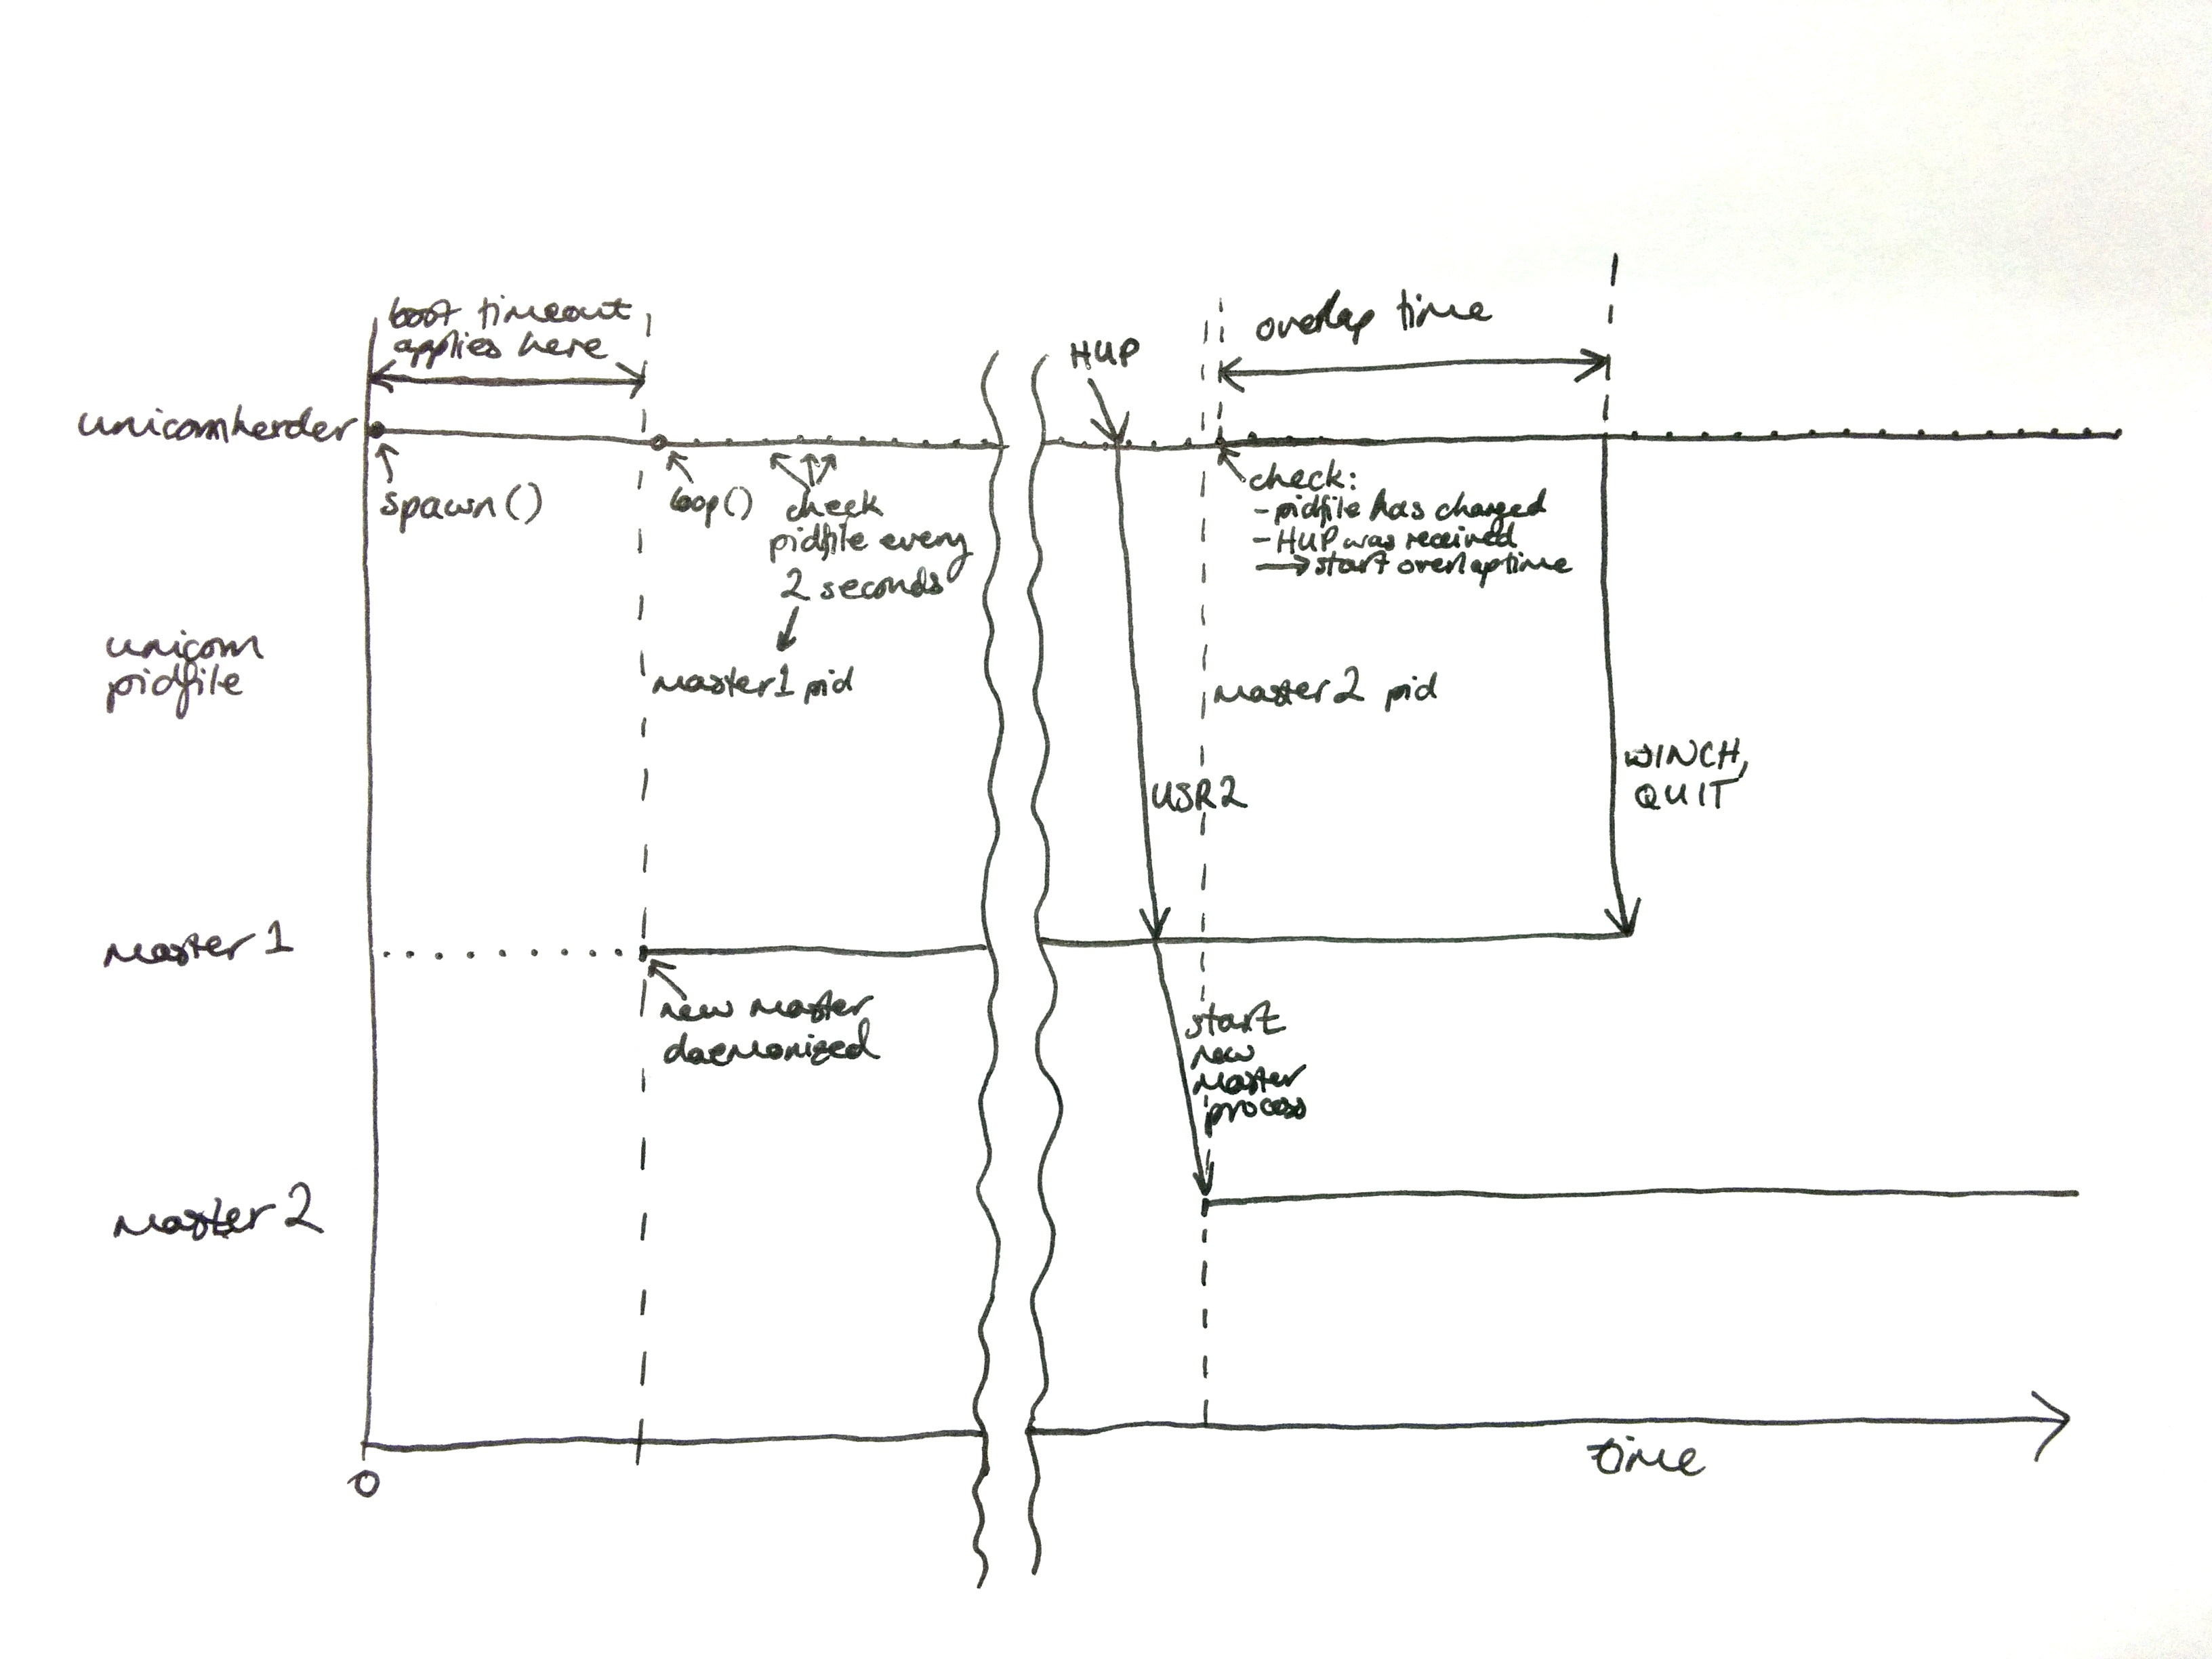 boot timeout
applies here
overlap time
HUP
unicornherder
spawn()
loop()
check
pidfile every
2 seconds
check:
- pidfile has changed
- HUP was received
→ start overlap time
unicorn
pidfile
master 1 pid
master 2 pid
USR2
WINCH,
QUIT
master 1
new master
daemonized
start
new
master
process
master 2
0
time